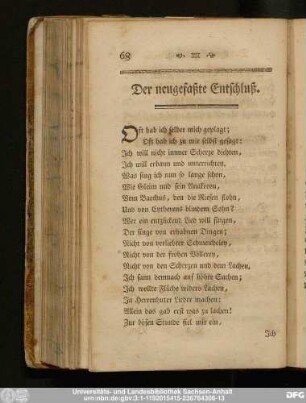 68
Der neugefaßte Entschluß.
Oft hab ich selber mich geplagt;
Oft hab ich zu mir selbst gesagt:
Ich will nicht immer Scherze dichten,
Ich will erbaun und unterrichten,
Was sing ich nun so lange schon,
Wie Gleim und sein Anakreon,
Vom Bacchus, den die Riesen flohn,
Und von Cytherens blindem Sohn?
Wer ein entzückend Lied will singen,
Der singe von erhabnen Dingen;
Nicht von verliebten Schmeicheley,
Nicht von der frohen Völlerey,
Nicht von den Scherzen und dem Lachen,
Ich sann demnach auf höhre Sachen;
Ich wollte Flüche widers Lachen,
Ja Herrenhuter Lieder machen:
Allein das gab erst was zu lachen!
Zur bösen Stunde fiel mir ein,
Ich
Universitäts- und Landesbibliothek Sachsen-Anhalt
urn:nbn:de:gbv:3:1-1192015415-236784356-13
DFG